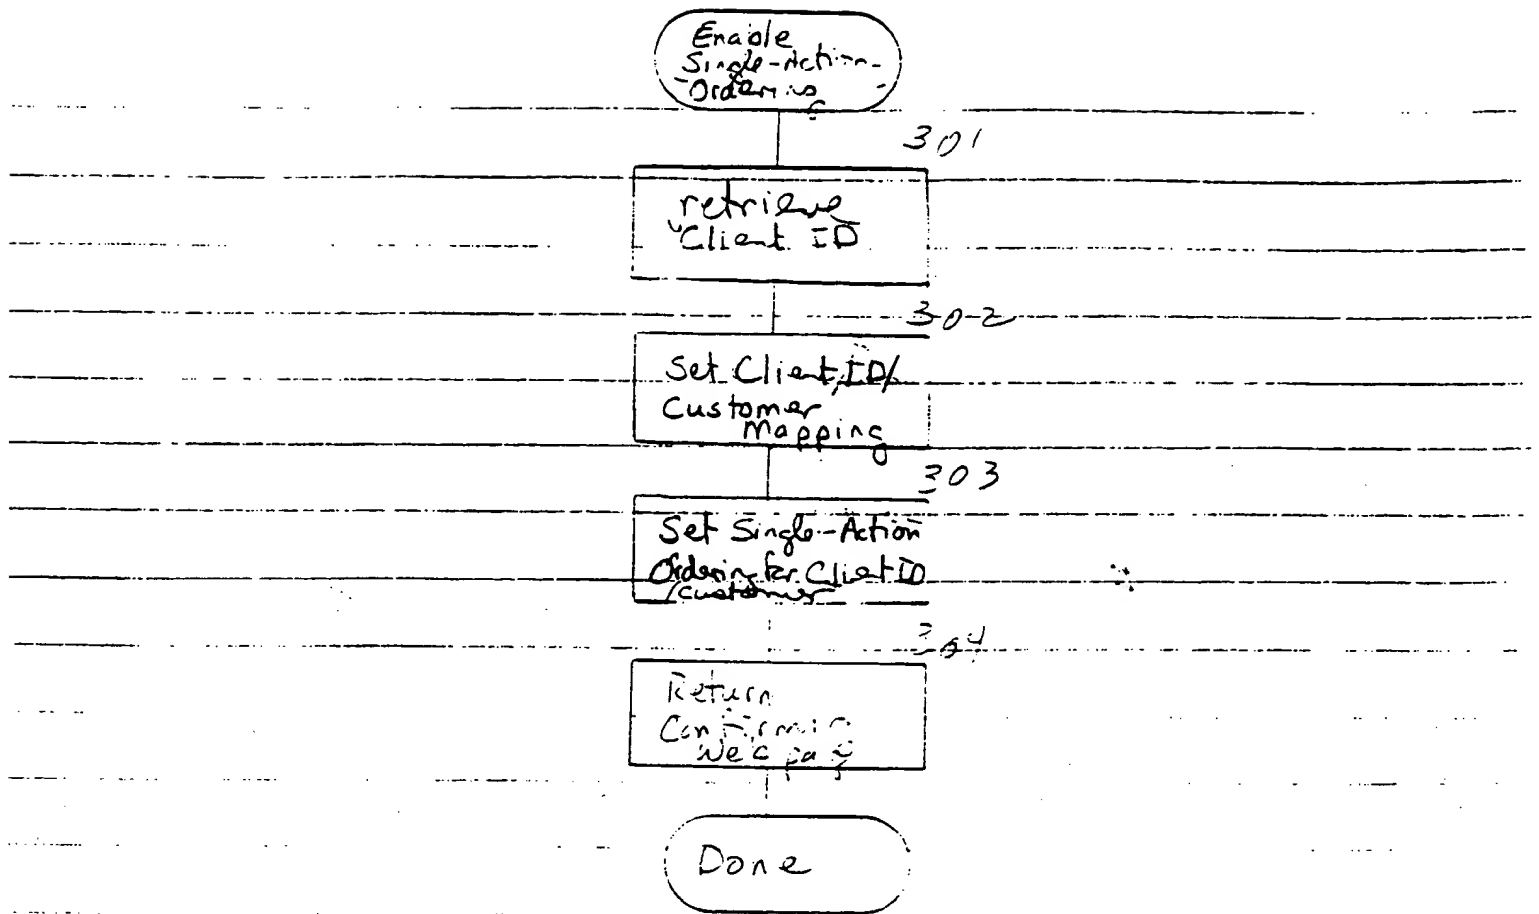 Enable
Single-Action-
Ordering
301
retrieve
Client ID
302
Set Client ID/
Customer
Mapping
303
Set Single-Action
Ordering for Client ID
/Customer
304
Return
Confirming
Web page
Done